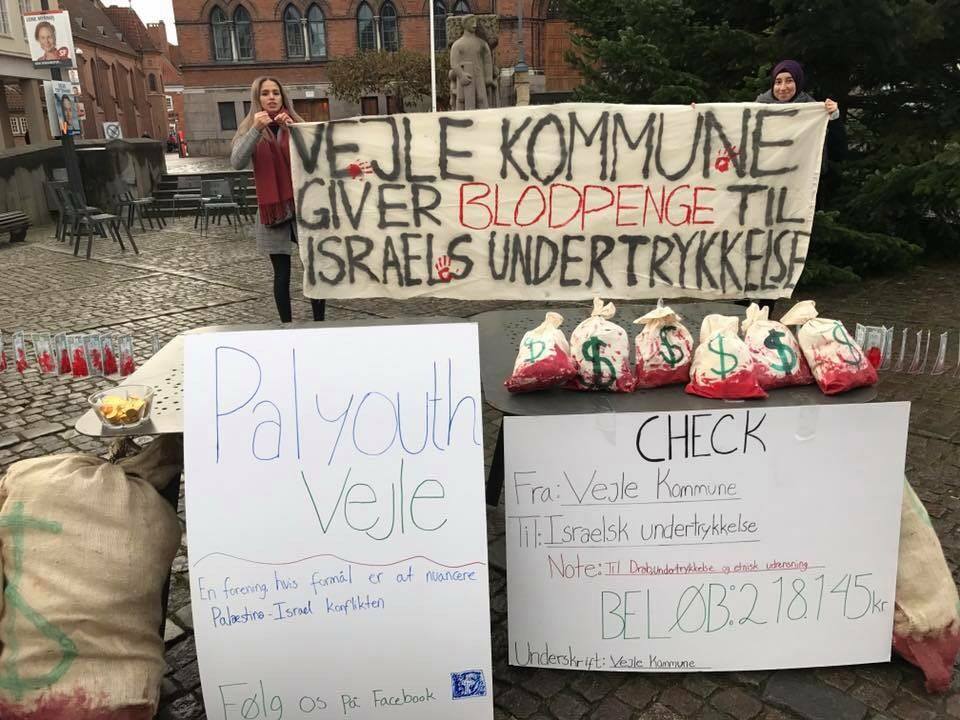 VEJLE KOMMUNE
GIVER BLODPENGE TIL
ISRAELS UNDERTRYKKELSE
$ $ $ $ $ $
Pal youth
Vejle
En forening hvis formål er at nuancere
Palæstina-Israel konflikten
Følg os på Facebook
CHECK
Fra: Vejle Kommune
Til: Israelsk undertrykkelse
Note: Til Drab, undertrykkelse og etnisk udrensning
BELØB: 2 18.145 kr
Underskrift: Vejle Kommune